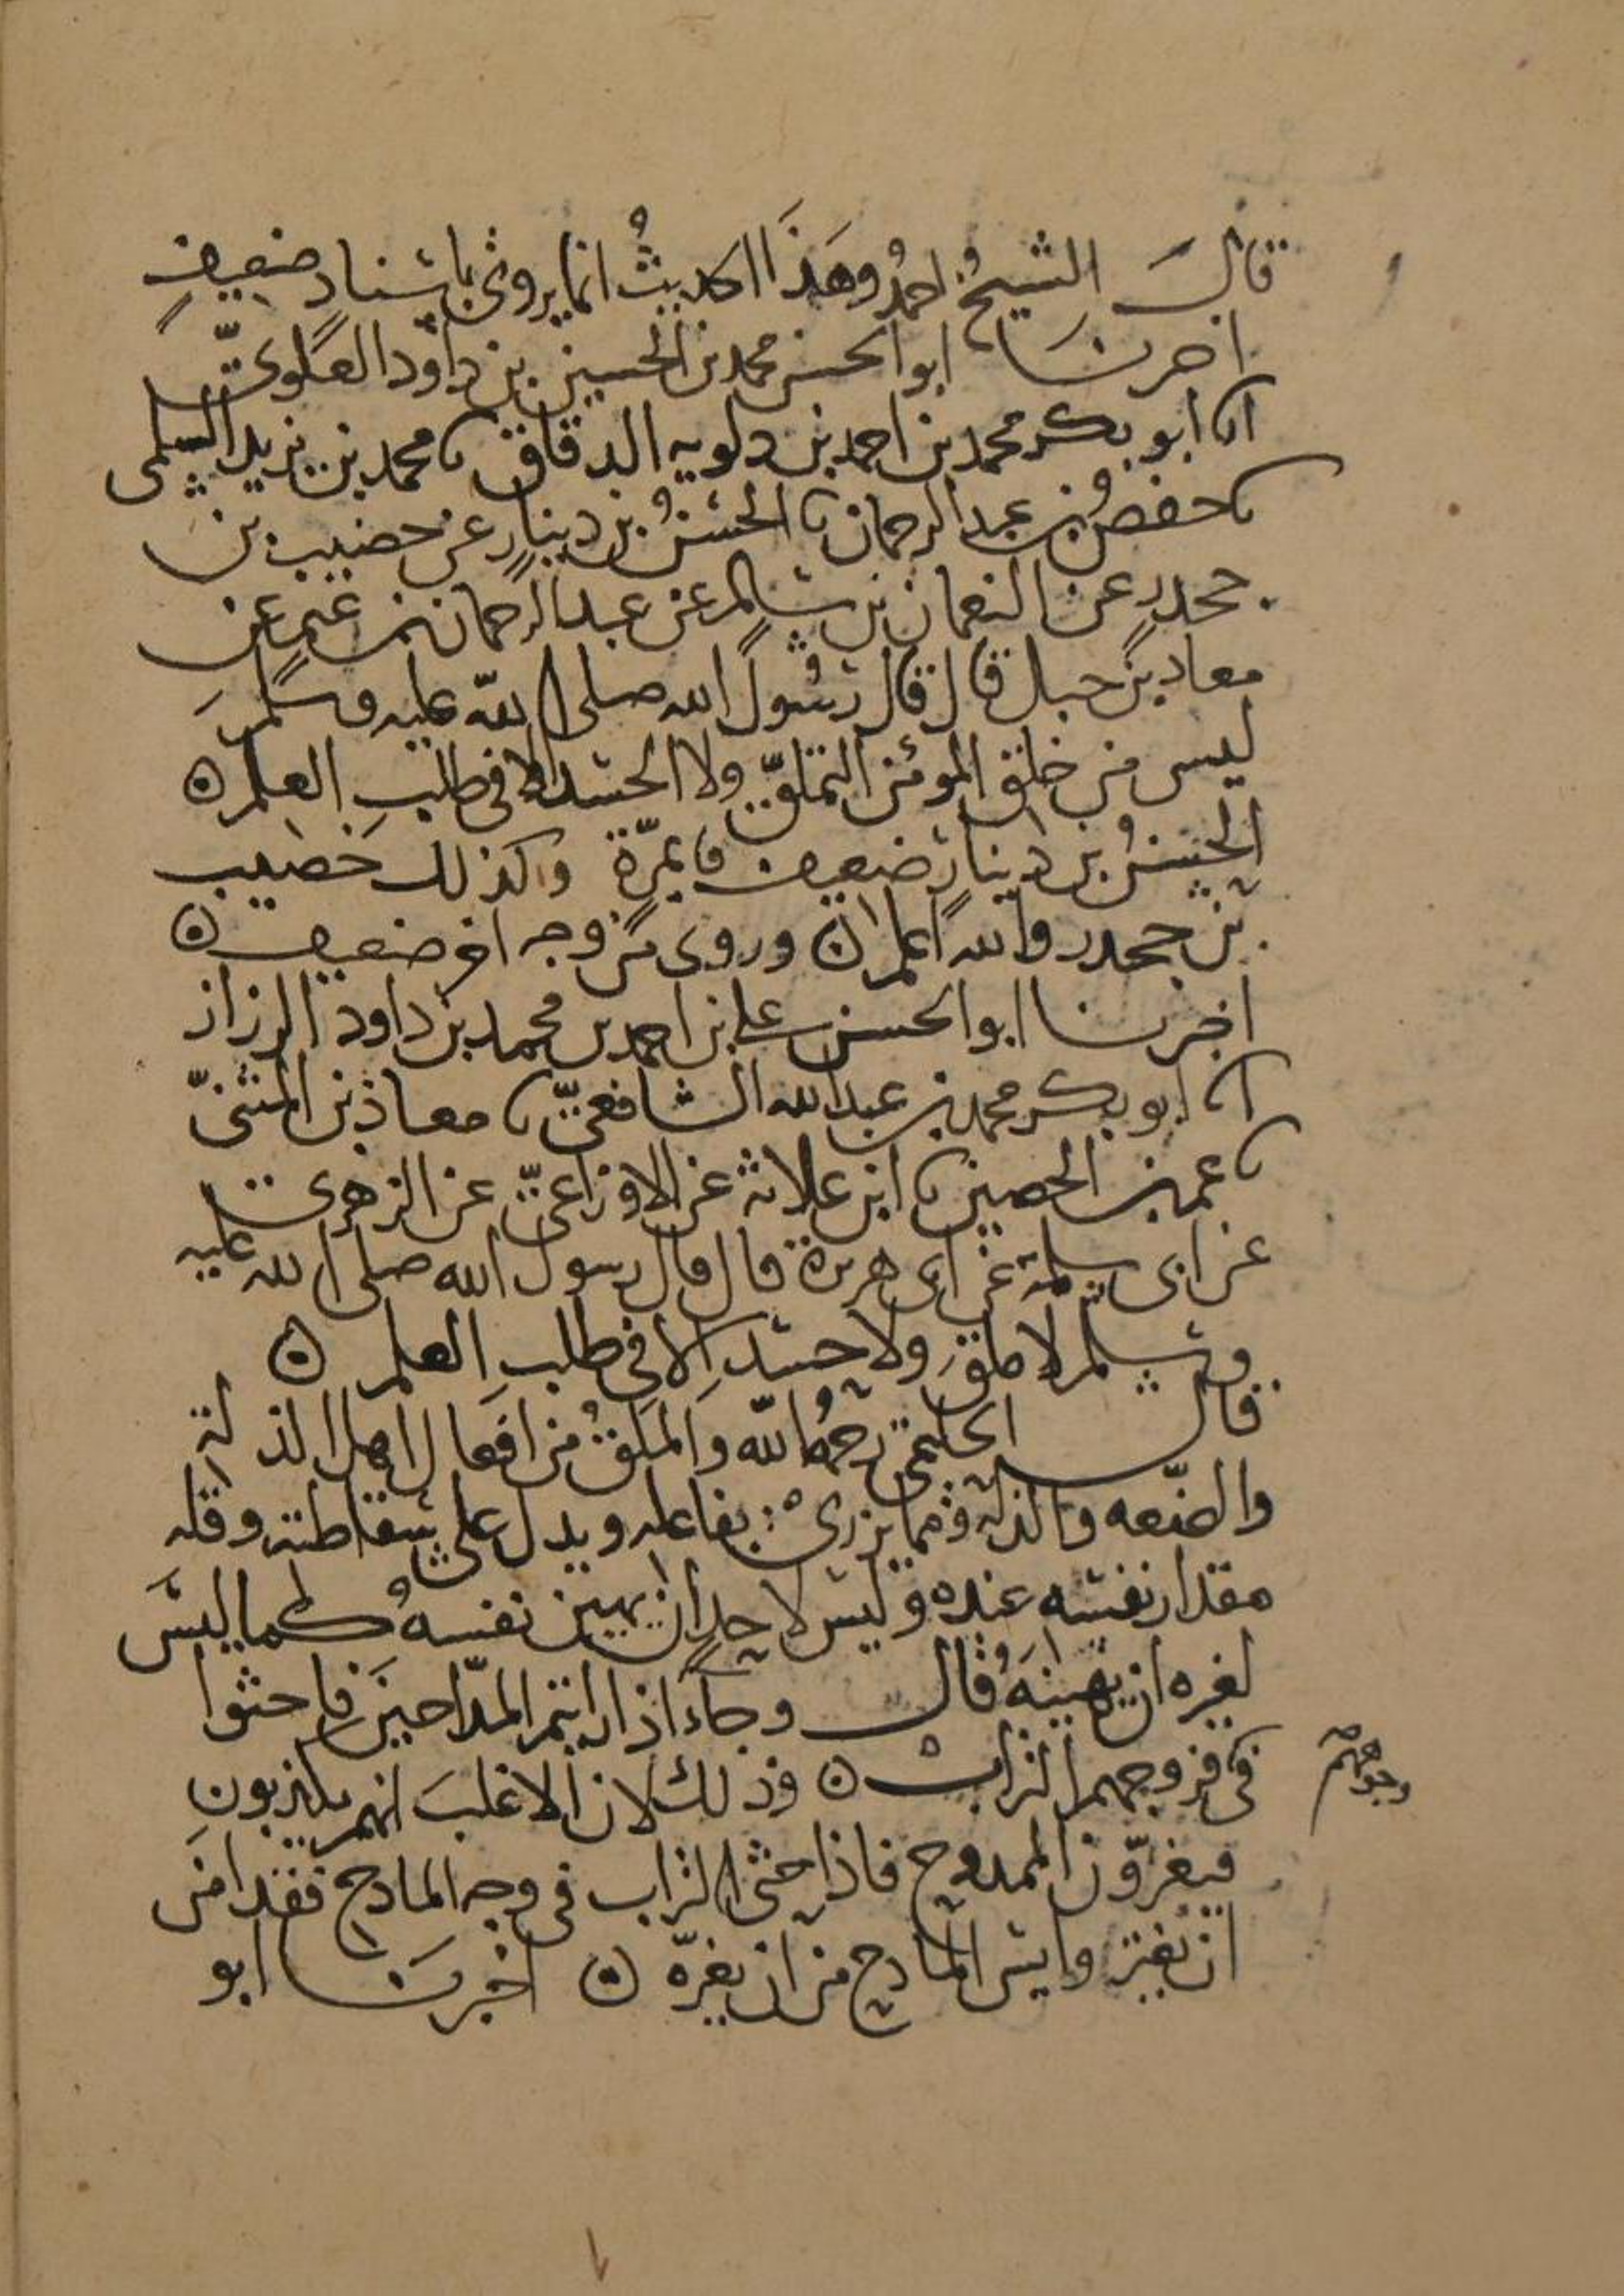 قال الشيخُ احمدُ وهَذَا الحديثُ انما يروى باسناد ضعيفٍ
اخبرنا ابو الحسن محمد بن الحسين بن داود العلوى
انا ابو بكر محمد بن احمد بن دلويه الدقاق نا محمد بن يزيد السلمى
نا حفصُ بن عبد الرحمان نا الحسنُ بن دينارٍ عن خصيب بن
جحدرٍ عن النعمان بن سالم عن عبد الرحمان بن غنم عن
معاد بن جبل قال قال رسُول الله صلى الله عليه وسلمَ
ليس من خلق المومن التملقّ ولا الحسد الا فى طلبِ العلم ن
الحسنُ بن دينارٍ ضعيف بمرّة وكذلك خصيب
بن جحدر والله اعلم ن وروى من وجه اخر ضعيف ن
اخبرنا ابو الحسن على بن احمد بن محمد بن داود الرزاز
انا ابو بكر محمد بن عبد الله الشافعىّ نا معاذ بن المثنىّ
نا عمرو بن الحصين نا ابن علاثة عن الاوزاعىّ عن الزهرى
عن ابى سلمة عن ابى هريرة قال قال رسول الله صلى الله عليه
وسلم لا ملقَ ولا حسدَ الا فى طلبِ العلم ن
قال الحليمى رحمهُ الله والملقُ من افعال اهل الذلة
والضّعه والذله ومما يزرىْ بفاعله ويدل على سقاطته وقله
مقدار نفسه عنده وليس لاحدٍ ان يهين نفسهُ كما ليسَ
لغيره ان يهينَهُ قال وجآءَ اذا رايتم المدّاحينَ فاحثوا
فى فروجهم الترابْ ن وذلك لان الاغلبَ انهم يكذبون
وجوههم
فيغرّون الممدوح فاذا حثى التراب فى وجه المادح فقد امن
ان يغتر وايس المادح من ان يغرّه ن اخبرنا ابو